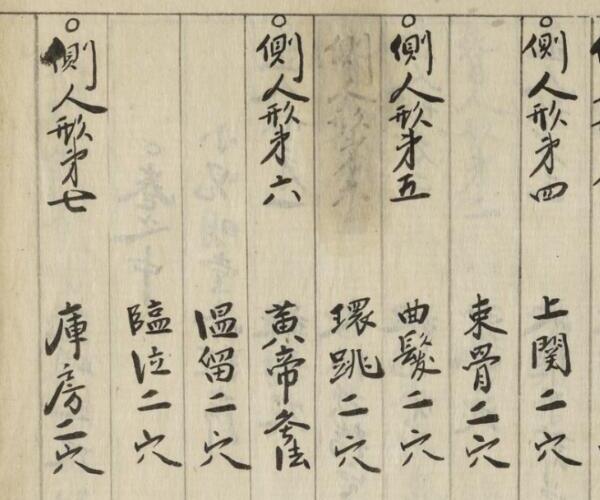 側人形第四
上関二穴
束骨二穴
側人形第五
曲鬢二穴
環跳二穴
側人形第六
黄帝灸法
温留二穴
臨泣二穴
側人形第七
庫房二穴